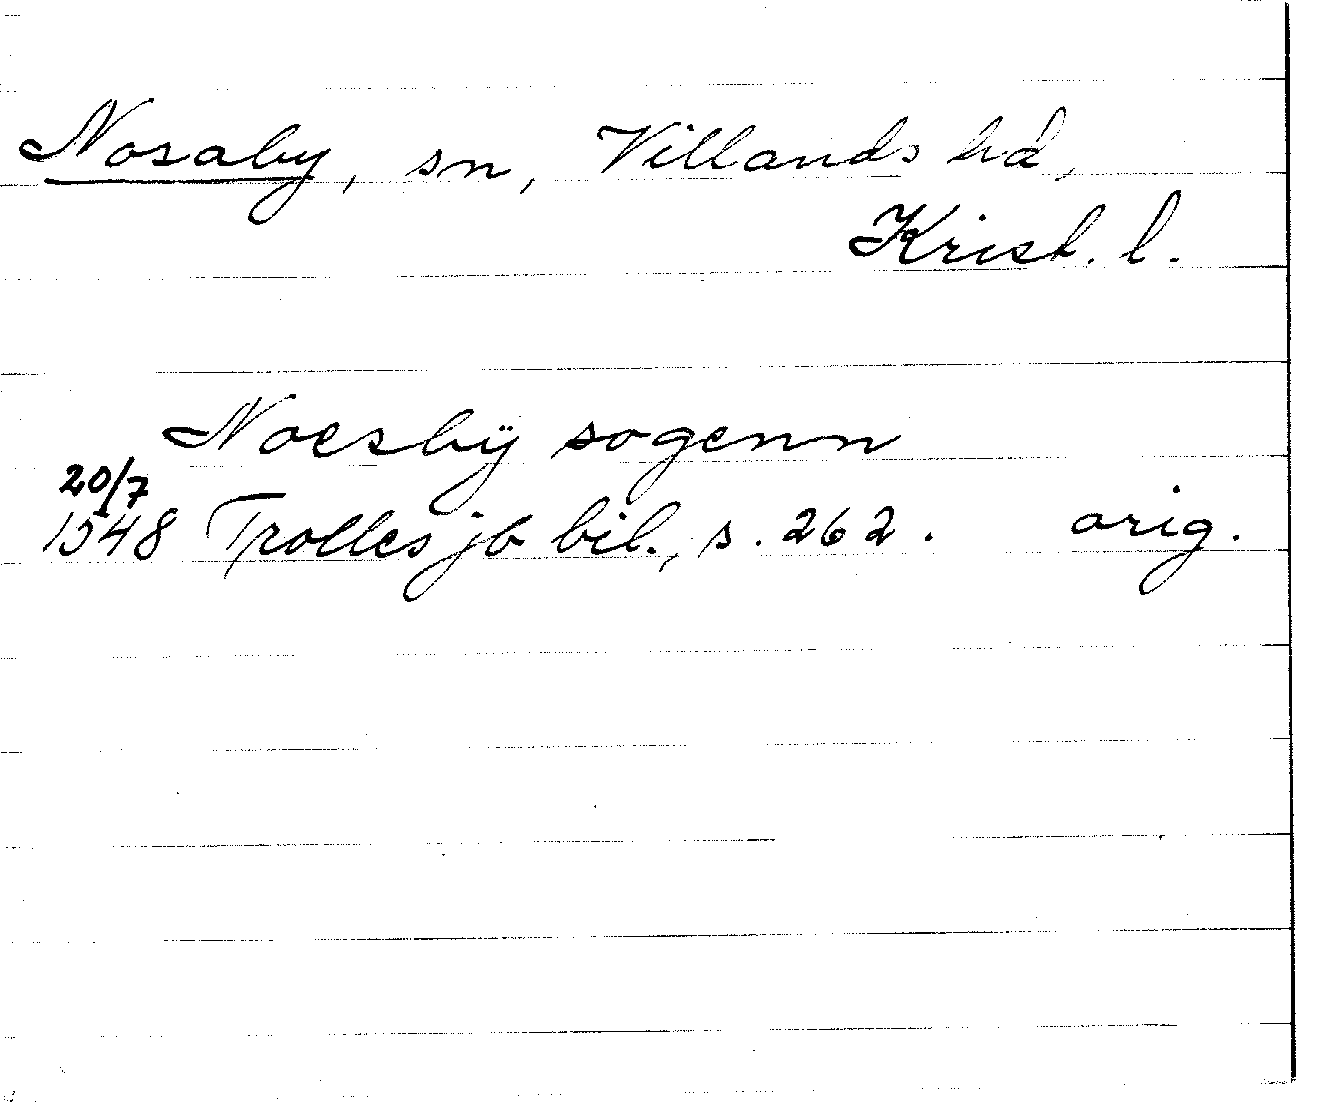 Nosaby, sn, Villands hd,
Krist. l.
Noesbÿ sogenn
20/7
1548 Trolles jb bil., s. 262. orig.